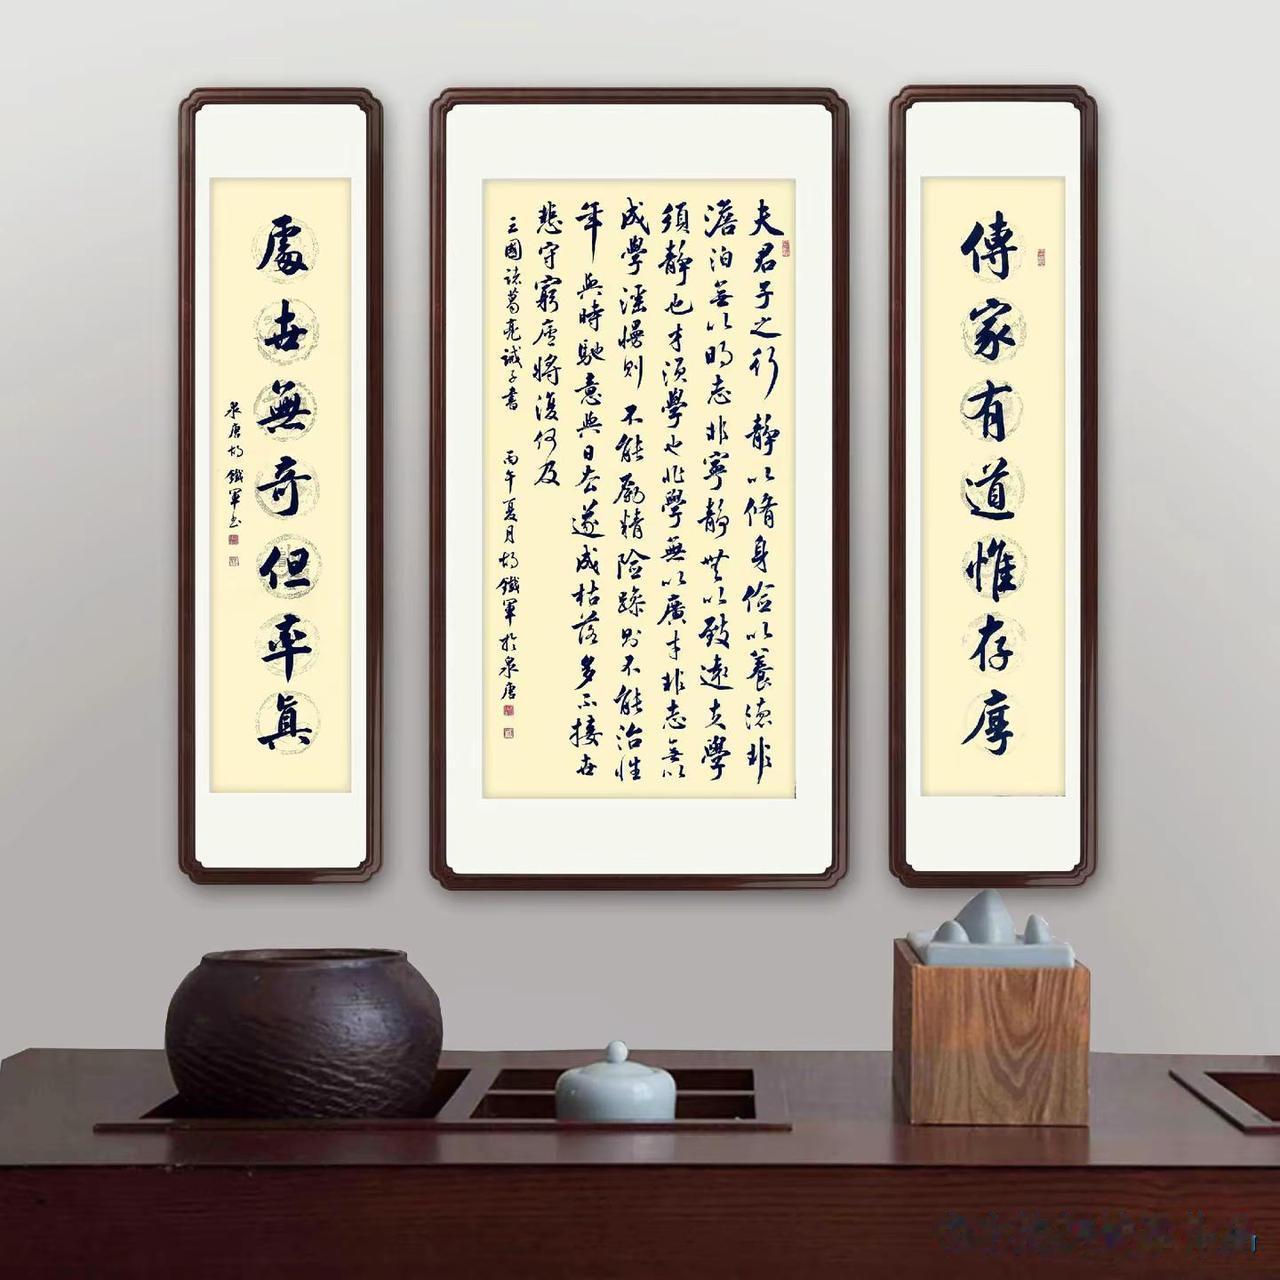 傳家有道惟存厚
夫君子之行靜以脩身儉以養德非
澹泊無以明志非寧靜無以致遠夫學
須靜也才須學也非學無以廣才非志無以
成學滛慢則不能勵精險躁則不能治性
年與時馳意與日去遂成枯落多不接世
悲守窮廬將復何及
三國諸葛亮誡子書 丙午夏月 胡鐵軍於泉唐
處世無奇但率真
泉唐胡鐵軍書